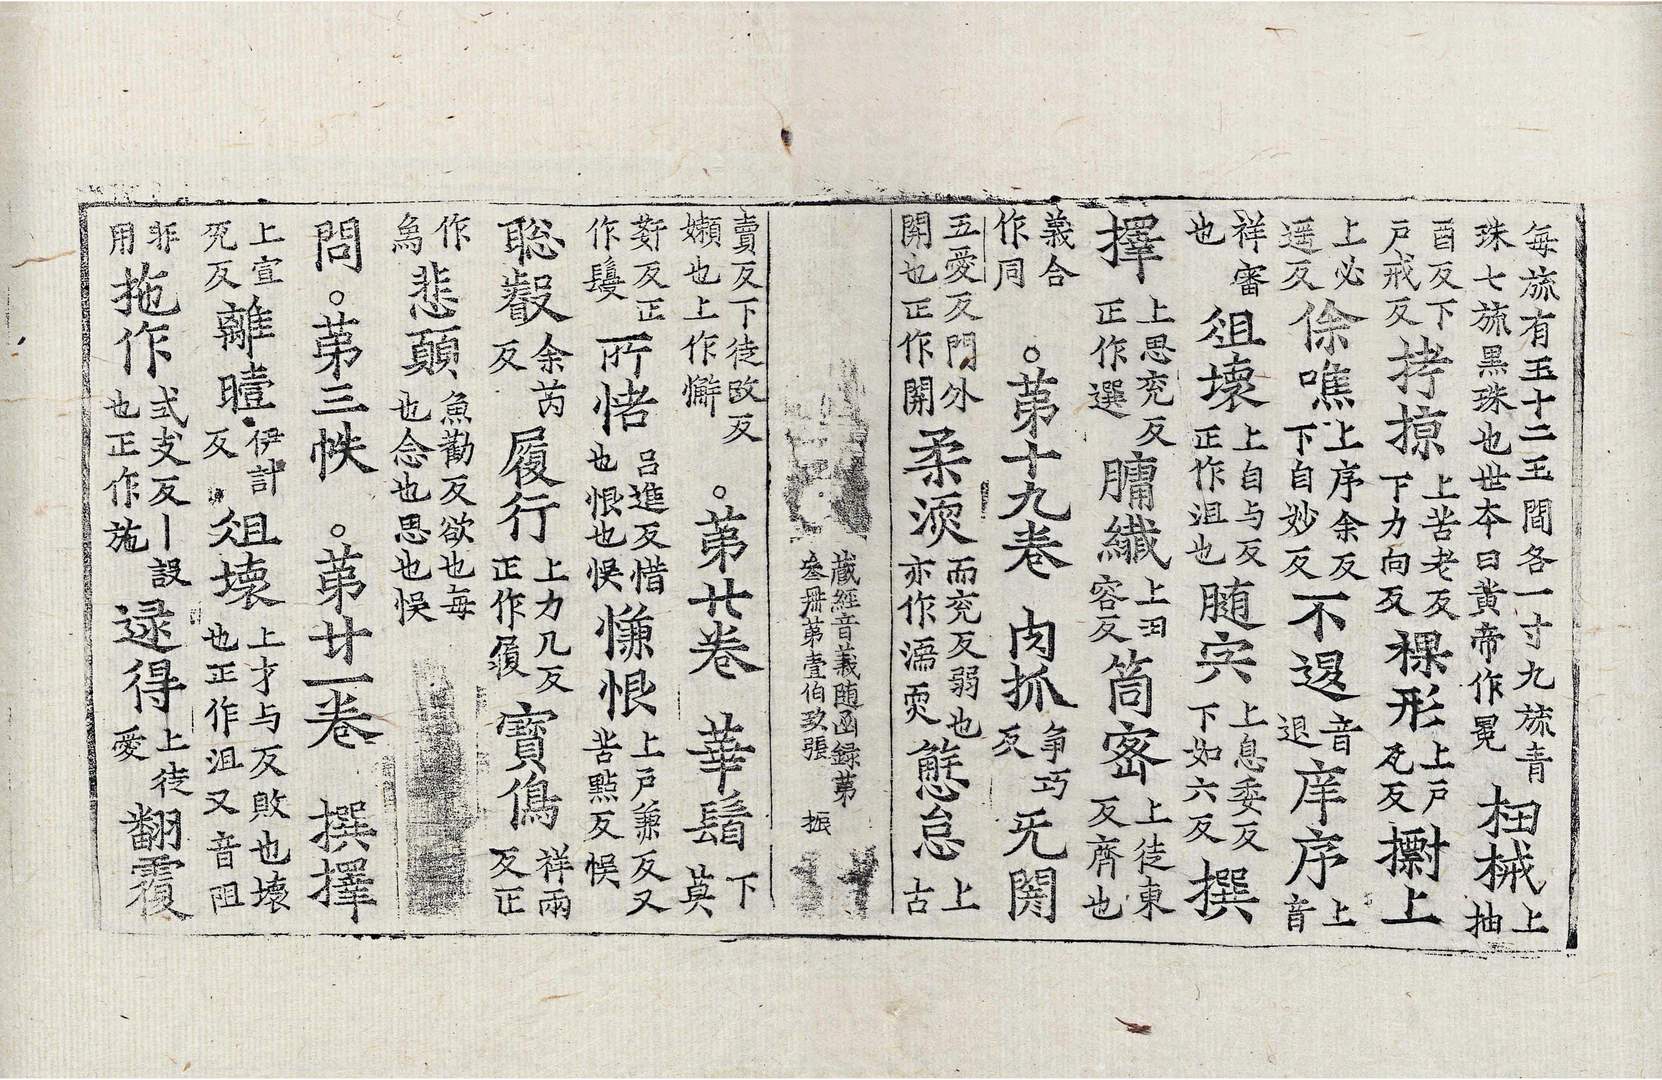 每旒有玉十二玉間各一寸九旒青珠七旒黑珠也世本曰黃帝作冕 杻械 上抽
酉反下戶戒反 拷掠 上苦老反下力向反 裸形 上戶瓦反 上
上必遥反 俆噍 上序余反下自妙反 不退 音退 庠序 上音
祥審也 俎壞 上自与反正作沮也 随宍 上息委反下如六反 撰
擇 上思兖反正作選 纖 上丑容反 筒密 上徒東反齊也
義合作同 。第十九卷 肉抓 爭巧反 旡閡
五愛反門外開也正作開 柔濡 而兖反弱也亦作濡耎 怠 上古
藏經音義随函録第叁冊第壹伯玖張 振
賣反下徒改反嬾也上作懈 。第廿卷 華鬘 下莫
反正作鬘 所悋 吕進反惜也恨也悮 慊恨 上戶兼反又苦點反悮
聡叡 余芮反 履行 上力几反正作履 寳 祥兩反正
作為 悲願 魚勸反欲也每也念也思也悮
問 。第三帙 。第廿一卷 撰擇
上宣兖反 離曀 伊計反 俎壞 上才与反敗也壞也正作沮又音阻
非用 拖作 式支反丨設也正作施 逯得 上徒愛 翻覆